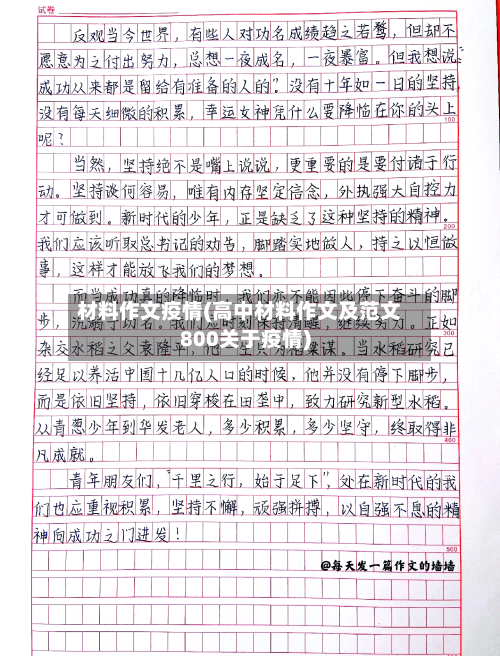 试卷
反观当今世界，有些人对功名成绩趋之若鹜，但却不
愿意为之付出努力，总想一夜成名，一夜暴富。但我想说：“
成功从来都是留给有准备的人的”。没有十年如一日的坚持，
没有每天细微的积累，幸运女神凭什么要降临在你的头上
100
呢？
当然，坚持绝不是嘴上说说，更重要的是要付诸于行
动。坚持谈何容易，唯有内存坚定信念，外执强大自控力
才可做到。新时代的少年，正是缺乏了这种坚持的精神。
200
我们应该听取总书记的劝告，脚踏实地做人，持之以恒做
事，这样才能放飞我们的梦想。
而当成功真的降临时，我们亦不能因此停下奋斗的脚
材料作文疫情(高中材料作文及范文
步，沉溺于功名。我们应时刻保持清醒，砥砺前行。正如
800关于疫情)
杂交水稻之父袁隆平，他一生只为稻粱谋。当水稻研究已
经足以养活中国十几亿人口的时候，他并没有停下脚步，
而是依旧坚持，依旧穿梭在田垄中，致力研究新型水稻。
从青葱少年到华发老人，多少积累，多少坚守，终取得非
400
凡成就。
青年朋友们，“千里之行，始于足下”，处在新时代的我
们也应重视积累，坚持不懈，顽强拼搏，以自强不息的精
神向成功之门进发！
500
@每天发一篇作文的墙墙